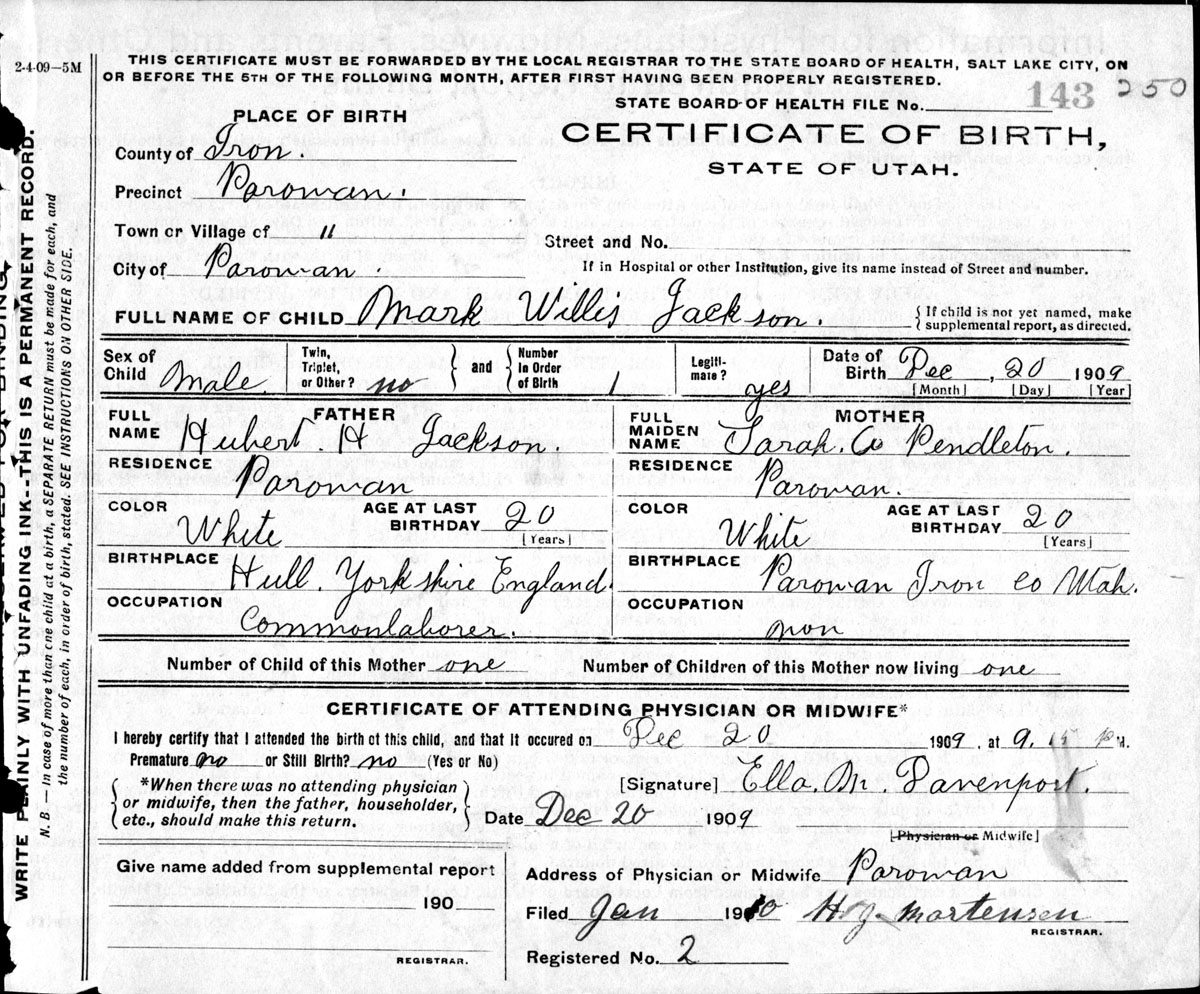 2-4-09—5M
THIS CERTIFICATE MUST BE FORWARDED BY THE LOCAL REGISTRAR TO THE STATE BOARD OF HEALTH, SALT LAKE CITY, ON
OR BEFORE THE 5TH OF THE FOLLOWING MONTH, AFTER FIRST HAVING BEEN PROPERLY REGISTERED.
STATE BOARD OF HEALTH FILE No. 143 250
PLACE OF BIRTH
CERTIFICATE OF BIRTH,
STATE OF UTAH.
County of Iron.
Precinct Parowan.
Town or Village of "
Street and No.
City of Parowan.
If in Hospital or other Institution, give its name instead of Street and number.
FULL NAME OF CHILD Mark Willis Jackson. { If child is not yet named, make
supplemental report, as directed.
Sex of Child Male. Twin, Triplet, or Other? no } and { Number in Order of Birth 1 Legitimate? yes Date of Birth Dec, 20 1909
[Month] [Day] [Year]
FATHER
FULL NAME Hubert. H Jackson.
RESIDENCE Parowan
COLOR White AGE AT LAST BIRTHDAY 20
[Years]
BIRTHPLACE Hull. Yorkshire England.
OCCUPATION Commonlaborer.
MOTHER
FULL MAIDEN NAME Sarah. A Pendleton.
RESIDENCE Parowan.
COLOR White AGE AT LAST BIRTHDAY 20
[Years]
BIRTHPLACE Parowan Iron co Utah.
OCCUPATION non
Number of Child of this Mother one Number of Children of this Mother now living one
CERTIFICATE OF ATTENDING PHYSICIAN OR MIDWIFE*
I hereby certify that I attended the birth of this child, and that it occured on Dec 20 1909, at 9. P M.
Premature no or Still Birth? no (Yes or No)
{ *When there was no attending physician
or midwife, then the father, householder,
etc., should make this return. }
[Signature] Ella. M. Davenport.
Date Dec 20 1909
[Physician or Midwife]
Give name added from supplemental report
190
REGISTRAR.
Address of Physician or Midwife Parowan
Filed Jan 1910 Mortensen
REGISTRAR.
Registered No. 2
WRITE PLAINLY WITH UNFADING INK--THIS IS A PERMANENT RECORD.
N. B.—In case of more than one child at a birth, a SEPARATE RETURN must be made for each, and
the number of each, in order of birth, stated. SEE INSTRUCTIONS ON OTHER SIDE.